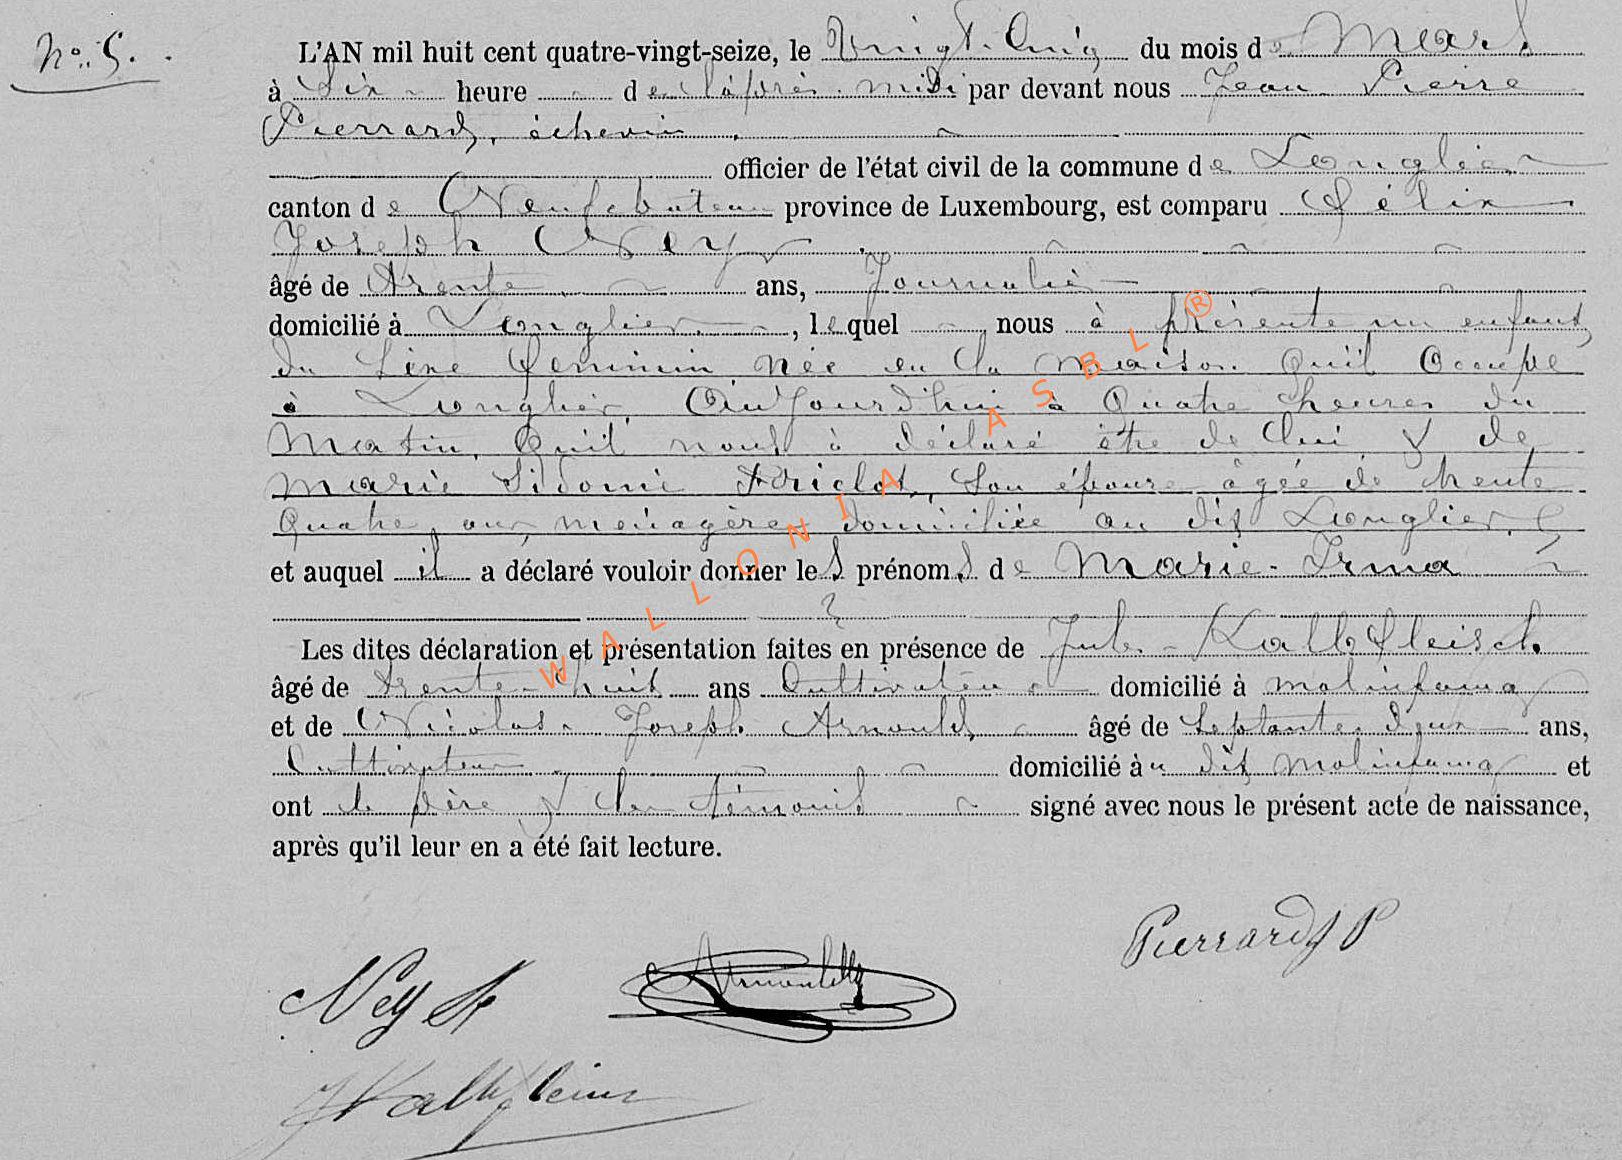 N° 5.
L'AN mil huit cent quatre-vingt-seize, le Vingt-Cinq du mois de Mars
à Six heure de l'après-midi par devant nous Jean Pierre
Pierrard, échevin
officier de l'état civil de la commune de Longlier
canton de Neufchâteau province de Luxembourg, est comparu Félix
Joseph Ney
âgé de trente ans, Journalier
domicilié à Longlier, lequel nous à présenté un enfant
du Sexe féminin née en la maison qu'il occupe
à Longlier, Aujourd'hui à Quatre heures du
Matin, Qu'il nous à déclaré être de lui & de
Marie Sidonie Son épouse âgée de trente
Quatre ans, ménagère domiciliée au dit Longlier
et auquel il a déclaré vouloir donner les prénoms de Marie-Irma
Les dites déclaration et présentation faites en présence de Jules Kalbfleisch
âgé de trente-huit ans Cultivateur domicilié à Molinfaing
et de Nicolas-Joseph Arnould âgé de Septante-deux ans,
Cultivateur domicilié au dit Molinfaing et
ont le père & les témoins signé avec nous le présent acte de naissance,
après qu'il leur en a été fait lecture.
Pierrard P
Ney
Arnould
WALLONIA ASBL ®